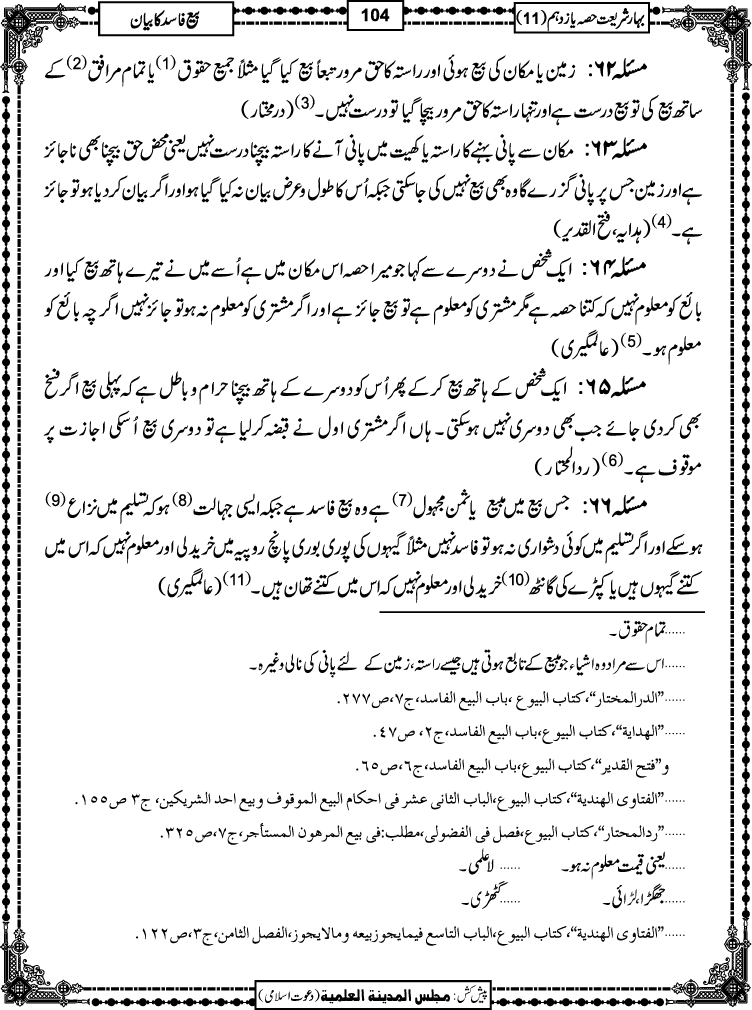 بہار شریعت حصہ یازدہم (11)
104
بیع فاسد کا بیان
مسئلہ ۶۲: زمین یا مکان کی بیع ہوئی اور راستہ کا حق مرور تبعاً بیع کیا گیا مثلاً جمیع حقوق (1) یا تمام مرافق (2) کے
ساتھ بیع کی تو بیع درست ہے اور تنہا راستہ کا حق مرور بیچا گیا تو درست نہیں۔ (3) (درمختار)
مسئلہ ۶۳: مکان سے پانی بہنے کا راستہ یا کھیت میں پانی آنے کا راستہ بیچنا درست نہیں یعنی محض حق بیچنا بھی ناجائز
ہے اور زمین جس پر پانی گزرے گا وہ بھی بیع نہیں کی جاسکتی جبکہ اُس کا طول و عرض بیان نہ کیا گیا ہو اور اگر بیان کر دیا ہو تو جائز
ہے۔ (4) (ہدایہ، فتح القدیر)
مسئلہ ۶۴: ایک شخص نے دوسرے سے کہا جو میرا حصہ اس مکان میں ہے اُسے میں نے تیرے ہاتھ بیع کیا اور
بائع کو معلوم نہیں کہ کتنا حصہ ہے مگر مشتری کو معلوم ہے تو بیع جائز ہے اور اگر مشتری کو معلوم نہ ہو تو جائز نہیں اگرچہ بائع کو
معلوم ہو۔ (5) (عالمگیری)
مسئلہ ۶۵: ایک شخص کے ہاتھ بیع کر کے پھر اُس کو دوسرے کے ہاتھ بیچنا حرام و باطل ہے کہ پہلی بیع اگر فسخ
بھی کر دی جائے جب بھی دوسری نہیں ہوسکتی۔ ہاں اگر مشتری اول نے قبضہ کر لیا ہے تو دوسری بیع اُسکی اجازت پر
موقوف ہے۔ (6) (ردالمحتار)
مسئلہ ۶۶: جس بیع میں مبیع یا ثمن مجہول (7) ہے وہ بیع فاسد ہے جبکہ ایسی جہالت (8) ہو کہ تسلیم میں نزاع (9)
ہوسکے اور اگر تسلیم میں کوئی دشواری نہ ہو تو فاسد نہیں مثلاً گیہوں کی پوری بوری پانچ روپیہ میں خرید لی اور معلوم نہیں کہ اس میں
کتنے گیہوں ہیں یا کپڑے کی گانٹھ (10) خرید لی اور معلوم نہیں کہ اس میں کتنے تھان ہیں۔ (11) (عالمگیری)
......تمام حقوق۔
......اس سے مراد وہ اشیاء جو مبیع کے تابع ہوتی ہیں جیسے راستہ، زمین کے لئے پانی کی نالی وغیرہ۔
......”الدرالمختار“، کتاب البیوع، باب البیع الفاسد، ج٧، ص٢٧٧.
......”الهداية“، کتاب البیوع، باب البیع الفاسد، ج٢، ص٤٧.
و”فتح القدیر“، کتاب البیوع، باب البیع الفاسد، ج٦، ص٦٥.
......”الفتاوی الهندية“، کتاب البیوع، الباب الثانی عشر فی احکام البیع الموقوف وبیع احد الشریکین، ج٣ ص١٥٥.
......”ردالمحتار“، کتاب البیوع، فصل فی الفضولی، مطلب: فی بیع المرهون المستأجر، ج٧، ص٣٢٥.
......یعنی قیمت معلوم نہ ہو۔ ......لاعلمی۔
......جھگڑا، لڑائی۔ ......گٹھڑی۔
......”الفتاوی الهندية“، کتاب البیوع، الباب التاسع فیمایجوزبیعه ومالایجوز، الفصل الثامن، ج٣، ص١٢٢.
پیش کش: مجلس المدینة العلمیة (دعوت اسلامی)